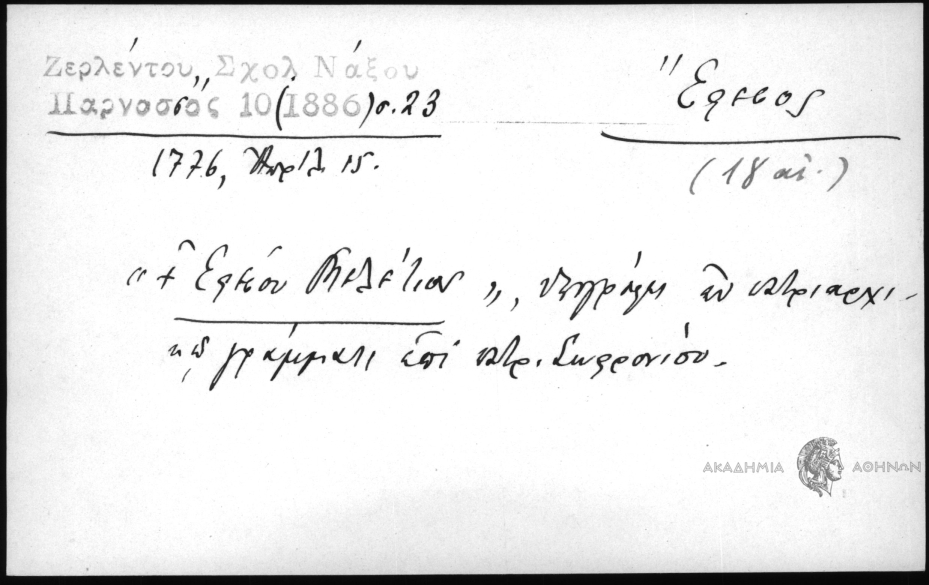 Ζερλέντου, Σχολ Νάξου
Παρνασσὸς 10 (1886) σ. 23
Ἔφεσος
1776, Ἀπρίλ. 15.
(18 αἰ.)
« † ὁ Ἐφέσου Μελέτιος », ὑπογράφει ἐν πατριαρχι-
κῷ γράμματι ἐπὶ πατρ. Σωφρονίου.
ΑΚΑΔΗΜΙΑ ΑΘΗΝΩΝ